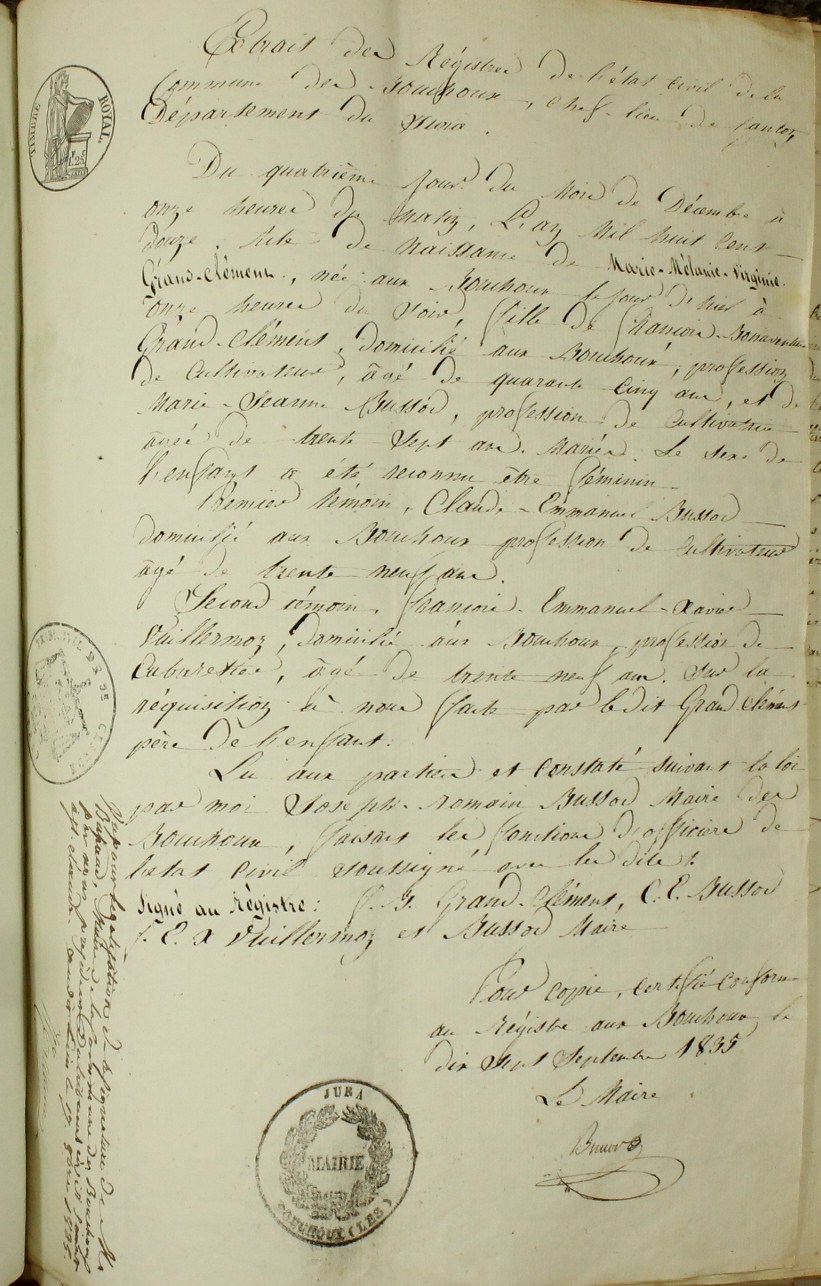 Extrait des Régistres de l'état civil de la
Commune des Bouchoux, chef-lieu de canton,
Département du Jura.
TIMBRE ROYAL
Du quatrième jour du Mois de Décembre à
onze heures du matin, L'an Mil huit cent
douze. Acte de Naissance de Marie-Mélanie-Virginie
Grand-clément, née aux Bouchoux le jour d'hier à
onze heures du soir, fille de françois-Bonaventure
Grand-Clément, domicilié aux Bouchoux, profession
de Cultivateur, âgé de quarante cinq ans, et de
Marie-Jeanne Bussod, profession de Cultivatrice
âgée de trente Sept ans. Mariés. Le sexe de
l'enfant a été reconnu être féminin
Premier témoin, Claude-Emmanuel Bussod
domicilié aux Bouchoux profession de Cultivateur
âgé de trente neuf ans.
Second témoin, françois-Emmanuel-Xavier
Vuillermoz, domicilié aux Bouchoux, profession de
Cabaretier, âgé de trente neuf ans. Sur la
réquisition à nous faite par le dit Grand Clément
père de l'enfant.
Lu aux parties et constaté suivant la loi
par moi Joseph-romain Bussod Maire des
Bouchoux, faisant les fonctions d'officier de
l'état civil soussigné avec les dits.
Signé au Régistre: f. B. Grand-Clément, C. E. Bussod
f. E. X Vuillermoz et Bussod Maire
Pour copie, certifié conforme
au Régistre aux Bouchoux, le
dix Sept Septembre 1835
Le Maire
JURA
MAIRIE
BOUCHOUX (LES)
Vu pour légalisation de la signature de Mr
Maire de la Commune des Bouchoux
par nous président du tribunal civil séant
à St. Claude. 1835.